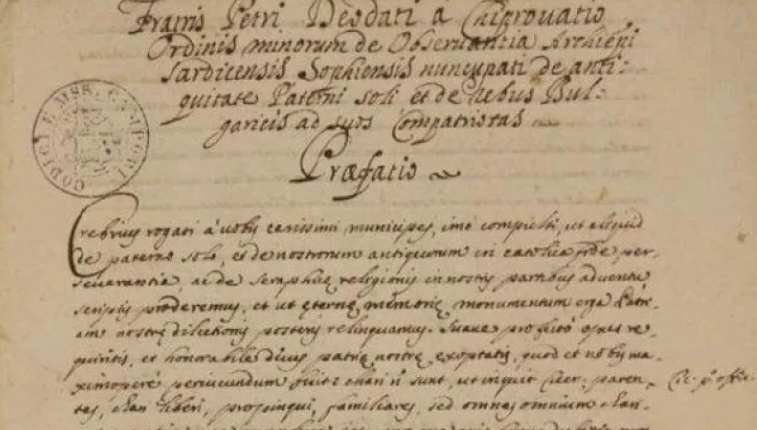 Fratris Petri Deodati à Chiprovatio
Ordinis minorum de Observantia Archiepi
Sardicensis Sophiensis nuncupati de anti:
quitate Paterni soli et de rebus Bul:
garicis ad suos Compatriotas
Præfatio
CODICI E MSS. CAMPORI
Crebrius rogati à vobis carissimi municipes, imò compulsi, ut aliquid
de paterno solo, et de nostrorum antiquorum in catolica fide per-
severantia, ac de Seraphicę religionis in nostris partibus adventu
scriptis proderemus, et ut ęternę memorię monumentum erga Patri-
am nostrę dilectionis posteris relinquamus. Suave profectò opus re-
quiritis, et honorabile decus patrię nostrę exoptatis, quod et nobis ma-
ximoperè periucundum
chari sunt, ut inquit Cicer. paren- Cic. pº offic.
tes, chari liberi, propinqui, familiares, sed omnes omnium chari-